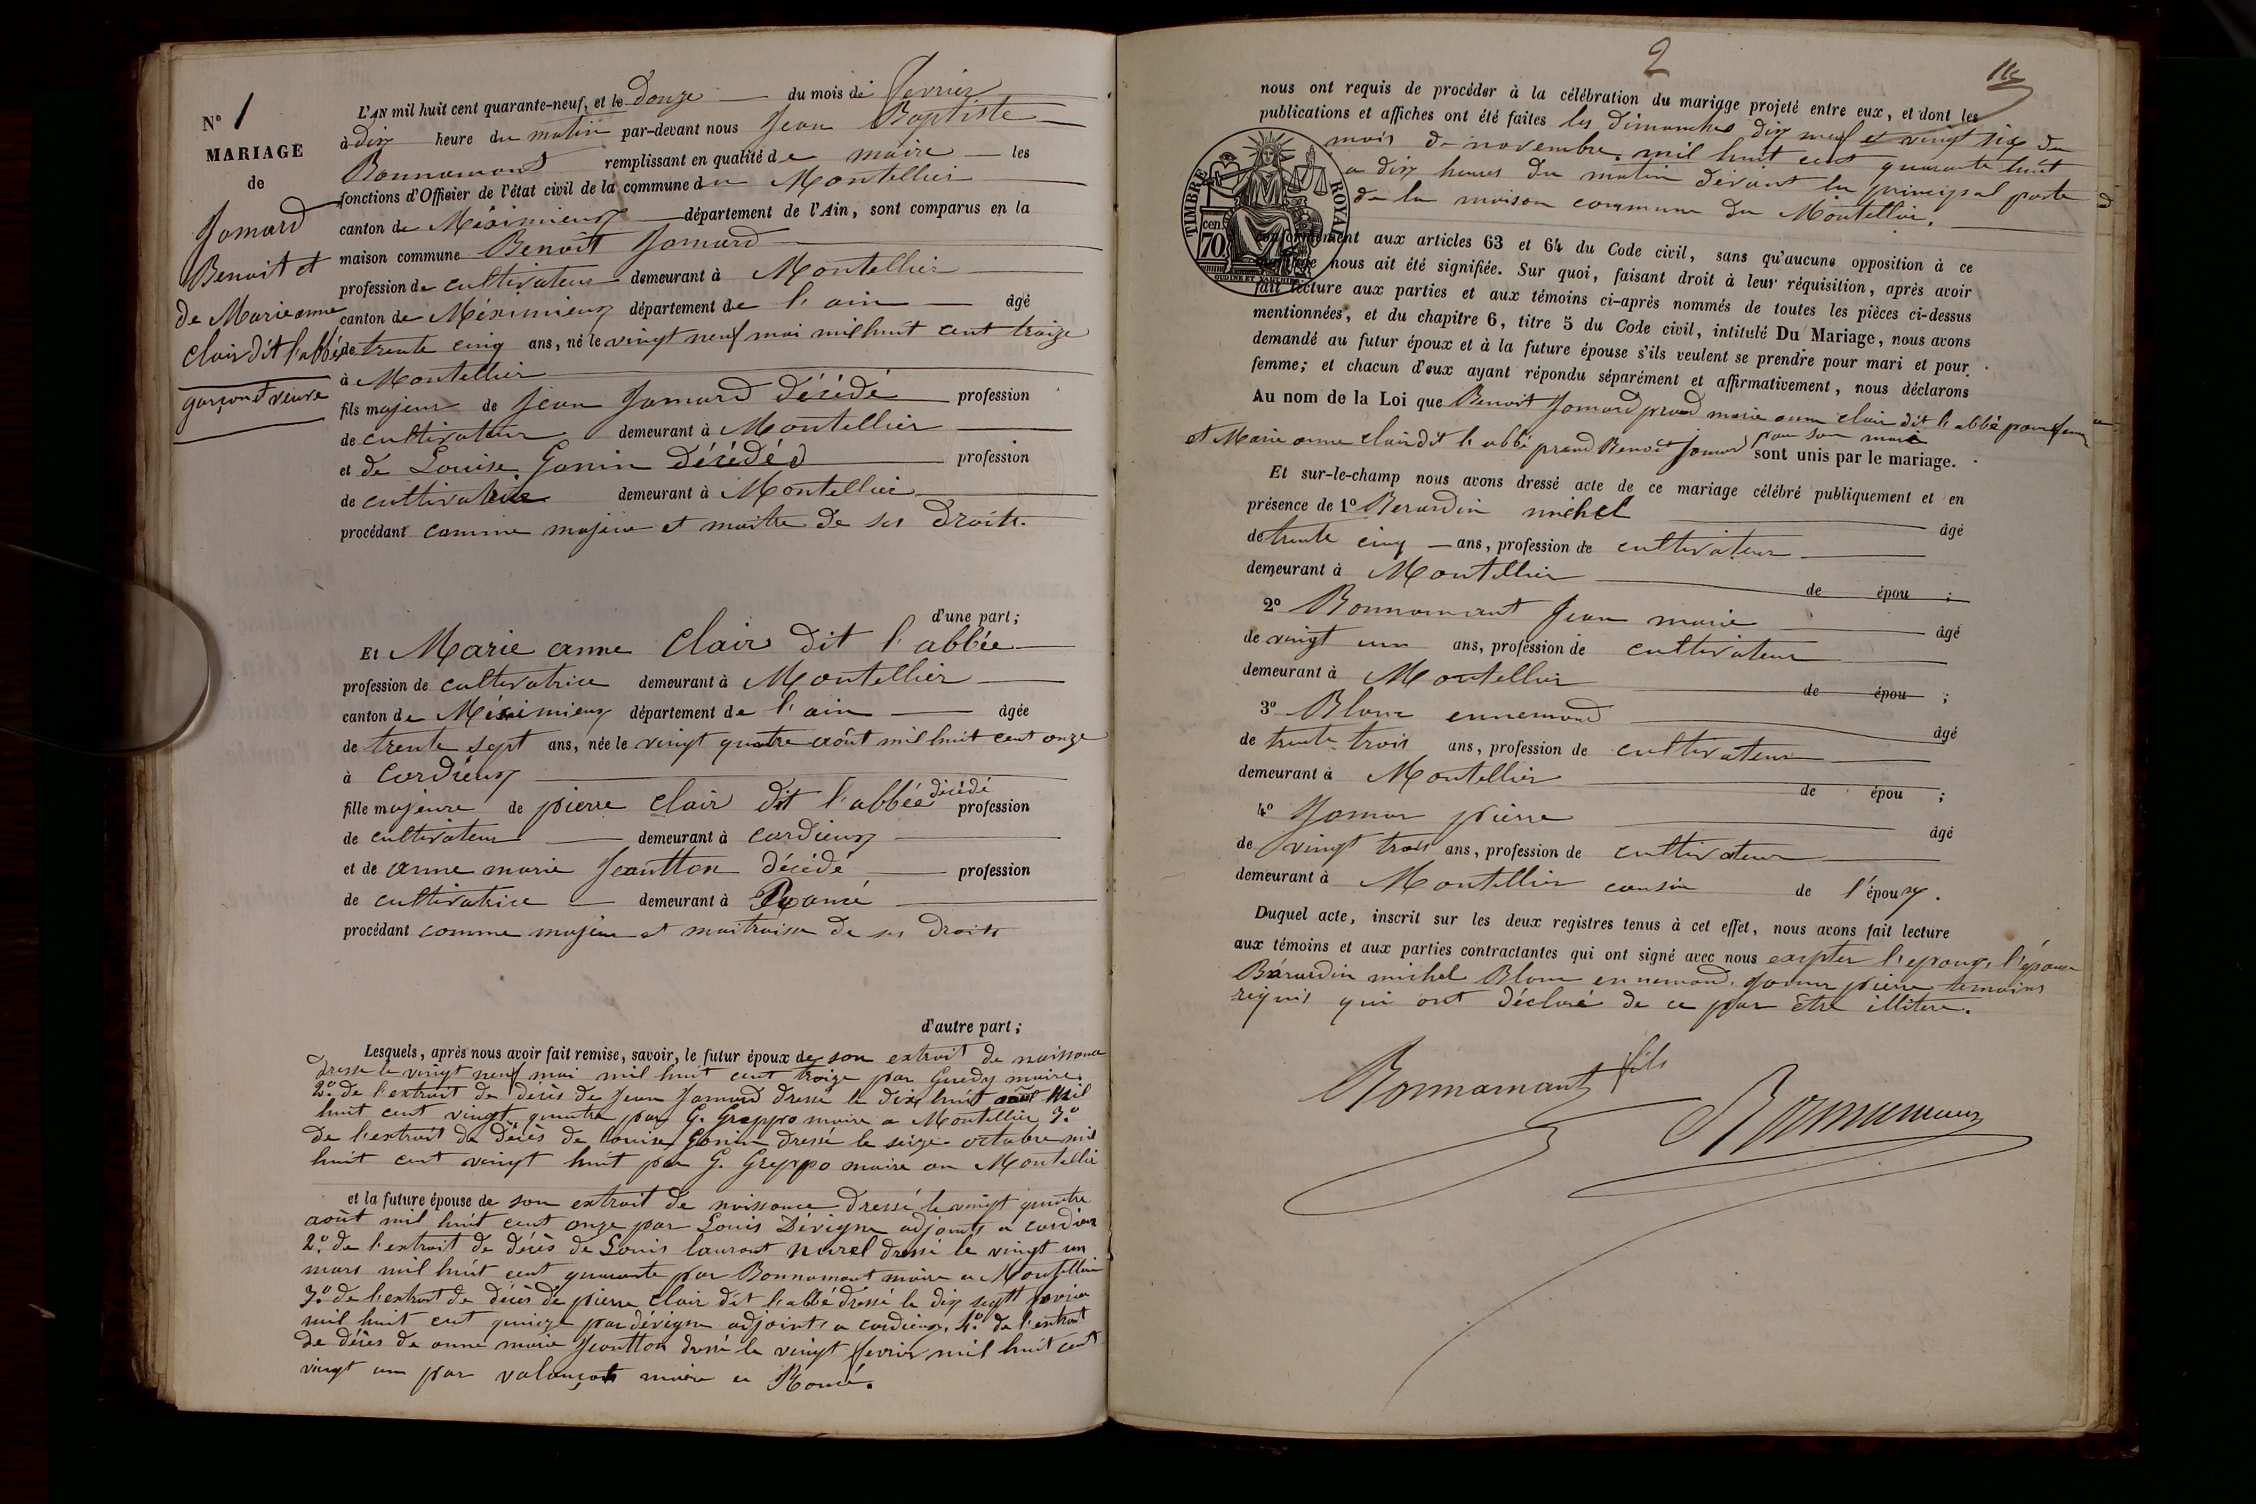 N° 1
MARIAGE
de
Jomard
Benoit et
de Marieanne
Clair dit l'abbé
garçon et veuve
L'AN mil huit cent quarante-neuf, et le Douze du mois de fevrier
à Dix heure du matin par-devant nous Jean Baptiste
Bonnamant remplissant en qualité de maire les
fonctions d'Officier de l'état civil de la commune du Montellier
canton de Méximieux département de l'Ain, sont comparus en la
maison commune Benoît Jomard
profession de cultivateur demeurant à Montellier
canton de Méximieux département de l'ain âgé
de trente cinq ans, né le vingt neuf mai mil huit cent treize
à Montellier
fils majeur de Jean Jomard Décédé profession
de cultivateur demeurant à Montellier
et de Louise Gonin Décédée profession
de cultivatrice demeurant à Montellier
procédant comme majeur et maitre de ses Droits.
d'une part;
Et Marie anne Clair dit l'abbée
profession de cultivatrice demeurant à Montellier
canton de Méximieux département de l'ain âgée
de trente sept ans, née le vingt quatre août mil huit cent onze
à Cordieux
fille majeure de pierre Clair dit l'abbée décédé profession
de cultivateur demeurant à Cordieux
et de anne marie Jeantton Décédé profession
de cultivatrice demeurant à Romé
procédant comme majeure et maitraisse de ses Droits
d'autre part;
Lesquels, après nous avoir fait remise, savoir, le futur époux de son extrait de naissance
dressé le vingt neuf mai mil huit cent treize par Guedy maire.
2° de l'extrait de décès de Jean Jomard dressé le dix huit août mil
huit cent vingt quatre par G. Greppo maire a Montellier 3°
de l'extrait de décès de Louise Gonin dressé le seize octobre mil
huit cent vingt huit par G. Greppo maire au Montellier
et la future épouse de son extrait de naissance dressé le vingt quatre
août mil huit cent onze par Louis Dévigne adjoint a cordieux
2° de l'extrait de décès de Louis laurant nurel dressé le vingt un
mars mil huit cent quarante par Bonnamant maire a Montellier
3° de l'extrait de décès de pierre Clair dit l'abbé dressé le dix sept fevrier
mil huit cent quinze par dévigne adjoint a cordieux. 4° de l'extrait
de décès de anne marie Jeantton dressé le vingt fevrier mil huit cent
vingt un par valançot maire a Romé.
2
nous ont requis de procéder à la célébration du mariage projeté entre eux, et dont les
publications et affiches ont été faites les dimanches dix neuf et vingt six du
mois de novembre mil huit cent quarante huit
a dix heures du matin devant la principal porte
de la maison commune du Montellier.
TIMBRE ROYAL
70 cen.
conformément aux articles 63 et 64 du Code civil, sans qu'aucune opposition à ce
mariage nous ait été signifiée. Sur quoi, faisant droit à leur réquisition, après avoir
fait lecture aux parties et aux témoins ci-après nommés de toutes les pièces ci-dessus
mentionnées, et du chapitre 6, titre 5 du Code civil, intitulé Du Mariage, nous avons
demandé au futur époux et à la future épouse s'ils veulent se prendre pour mari et pour
femme; et chacun d'eux ayant répondu séparément et affirmativement, nous déclarons
Au nom de la Loi que Benoit Jomard prend marie anne clair dit l'abbé pour femme
et Marie anne clair dit l'abbé prend Benoît Jomard pour son mari
sont unis par le mariage.
Et sur-le-champ nous avons dressé acte de ce mariage célébré publiquement et en
présence de 1° Berardin michel âgé
de trente cinq ans, profession de cultivateur
demeurant à Montellier de épou ;
2° Bonnamant Jean marie âgé
de vingt un ans, profession de cultivateur
demeurant à Montellier de épou ;
3° Blanc ennemond âgé
de trente trois ans, profession de cultivateur
demeurant à Montellier de épou ;
4° Jomar pierre âgé
de vingt trois ans, profession de cultivateur
demeurant à Montellier cousin de l'époux.
Duquel acte, inscrit sur les deux registres tenus à cet effet, nous avons fait lecture
aux témoins et aux parties contractantes qui ont signé avec nous excepter l'epoux, l'épouse
Bérardin michel Blanc ennemond. Jomar pierre temoins
requis qui ont déclaré de ce par être illitere.
Bonnamant fils
Bonnamant